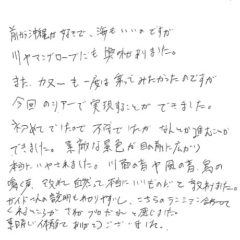 前から沖縄が好きで、海もいいのですが
川やマングローブにも興味がありました。
また、カヌーも一度は乗ってみたかったのですが
今回のツアーで実現することができました。
初めてでしたので不安でしたが なんとか進むことが
できました。素敵な景色が目の前に広がり
本当にいやされました。川面の音や風の音、鳥の
鳴く声、 自然って本当にいいものだと 思いました。
ガイドさんの説明もわかりやすく、こちらの に合わせて
くれるところが さすがプロだなと 感じました。
素晴しい体験で ありがとうございました。